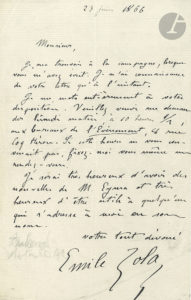 23 juin 1866
Monsieur,
Je me trouvais à la campagne, lorsque
vous m'avez écrit. Je n'ai connaissance
de votre lettre qu'à l'instant.
Je me mets entièrement à votre
disposition. Veuillez, venir me demander
lundi matin, à 10 heures 1/2
aux bureaux de l'Événement, rue
Coq Héron. Si cette heure ne vous con-
venait pas, fixez-moi vous-même un
rendez-vous.
Je serai très heureux d'avoir des
nouvelles de M. et très
heureux d'être utile à quelqu'un
qui s'adresse à moi en son
nom.
Votre tout dévoué
Emile Zola